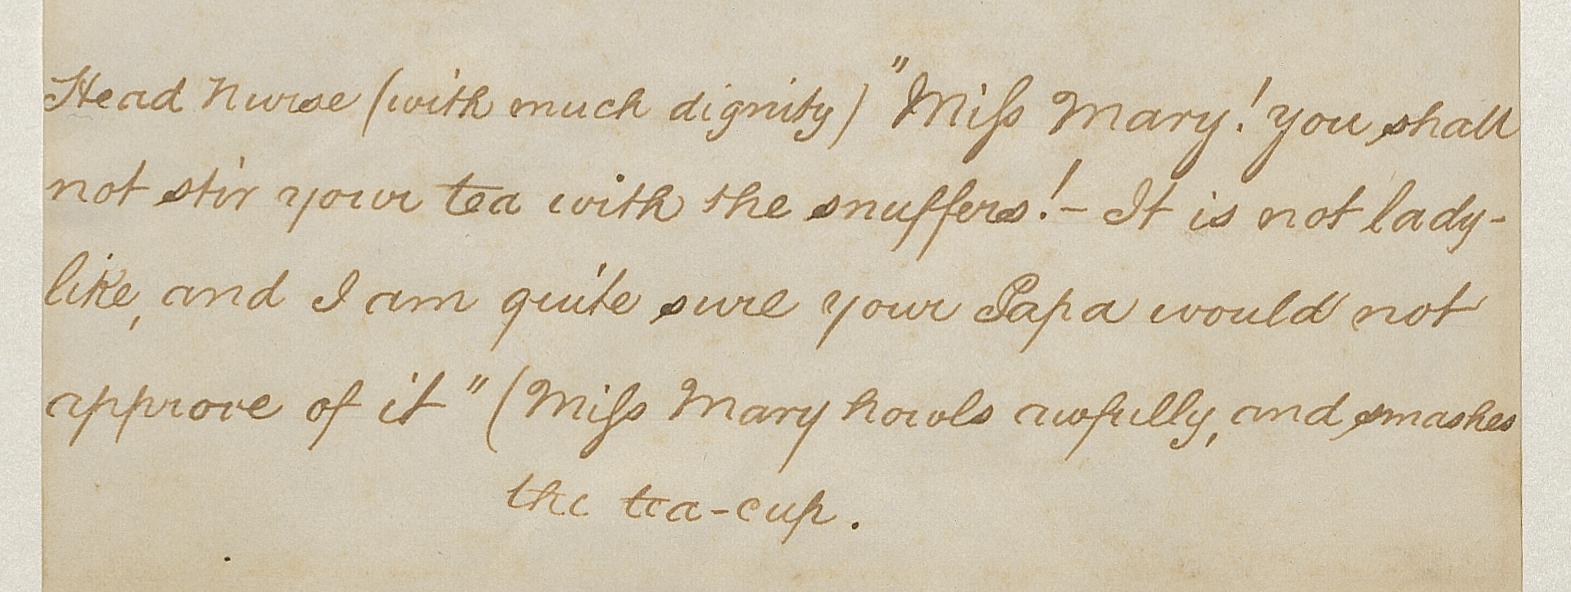 Head Nurse (with much dignity) "Miſs Mary! you shall
not stir your tea with the snuffers! – It is not lady-
like, and I am quite sure your Papa would not
approve of it" (Miſs Mary howls awfully, and smashes
the tea-cup.